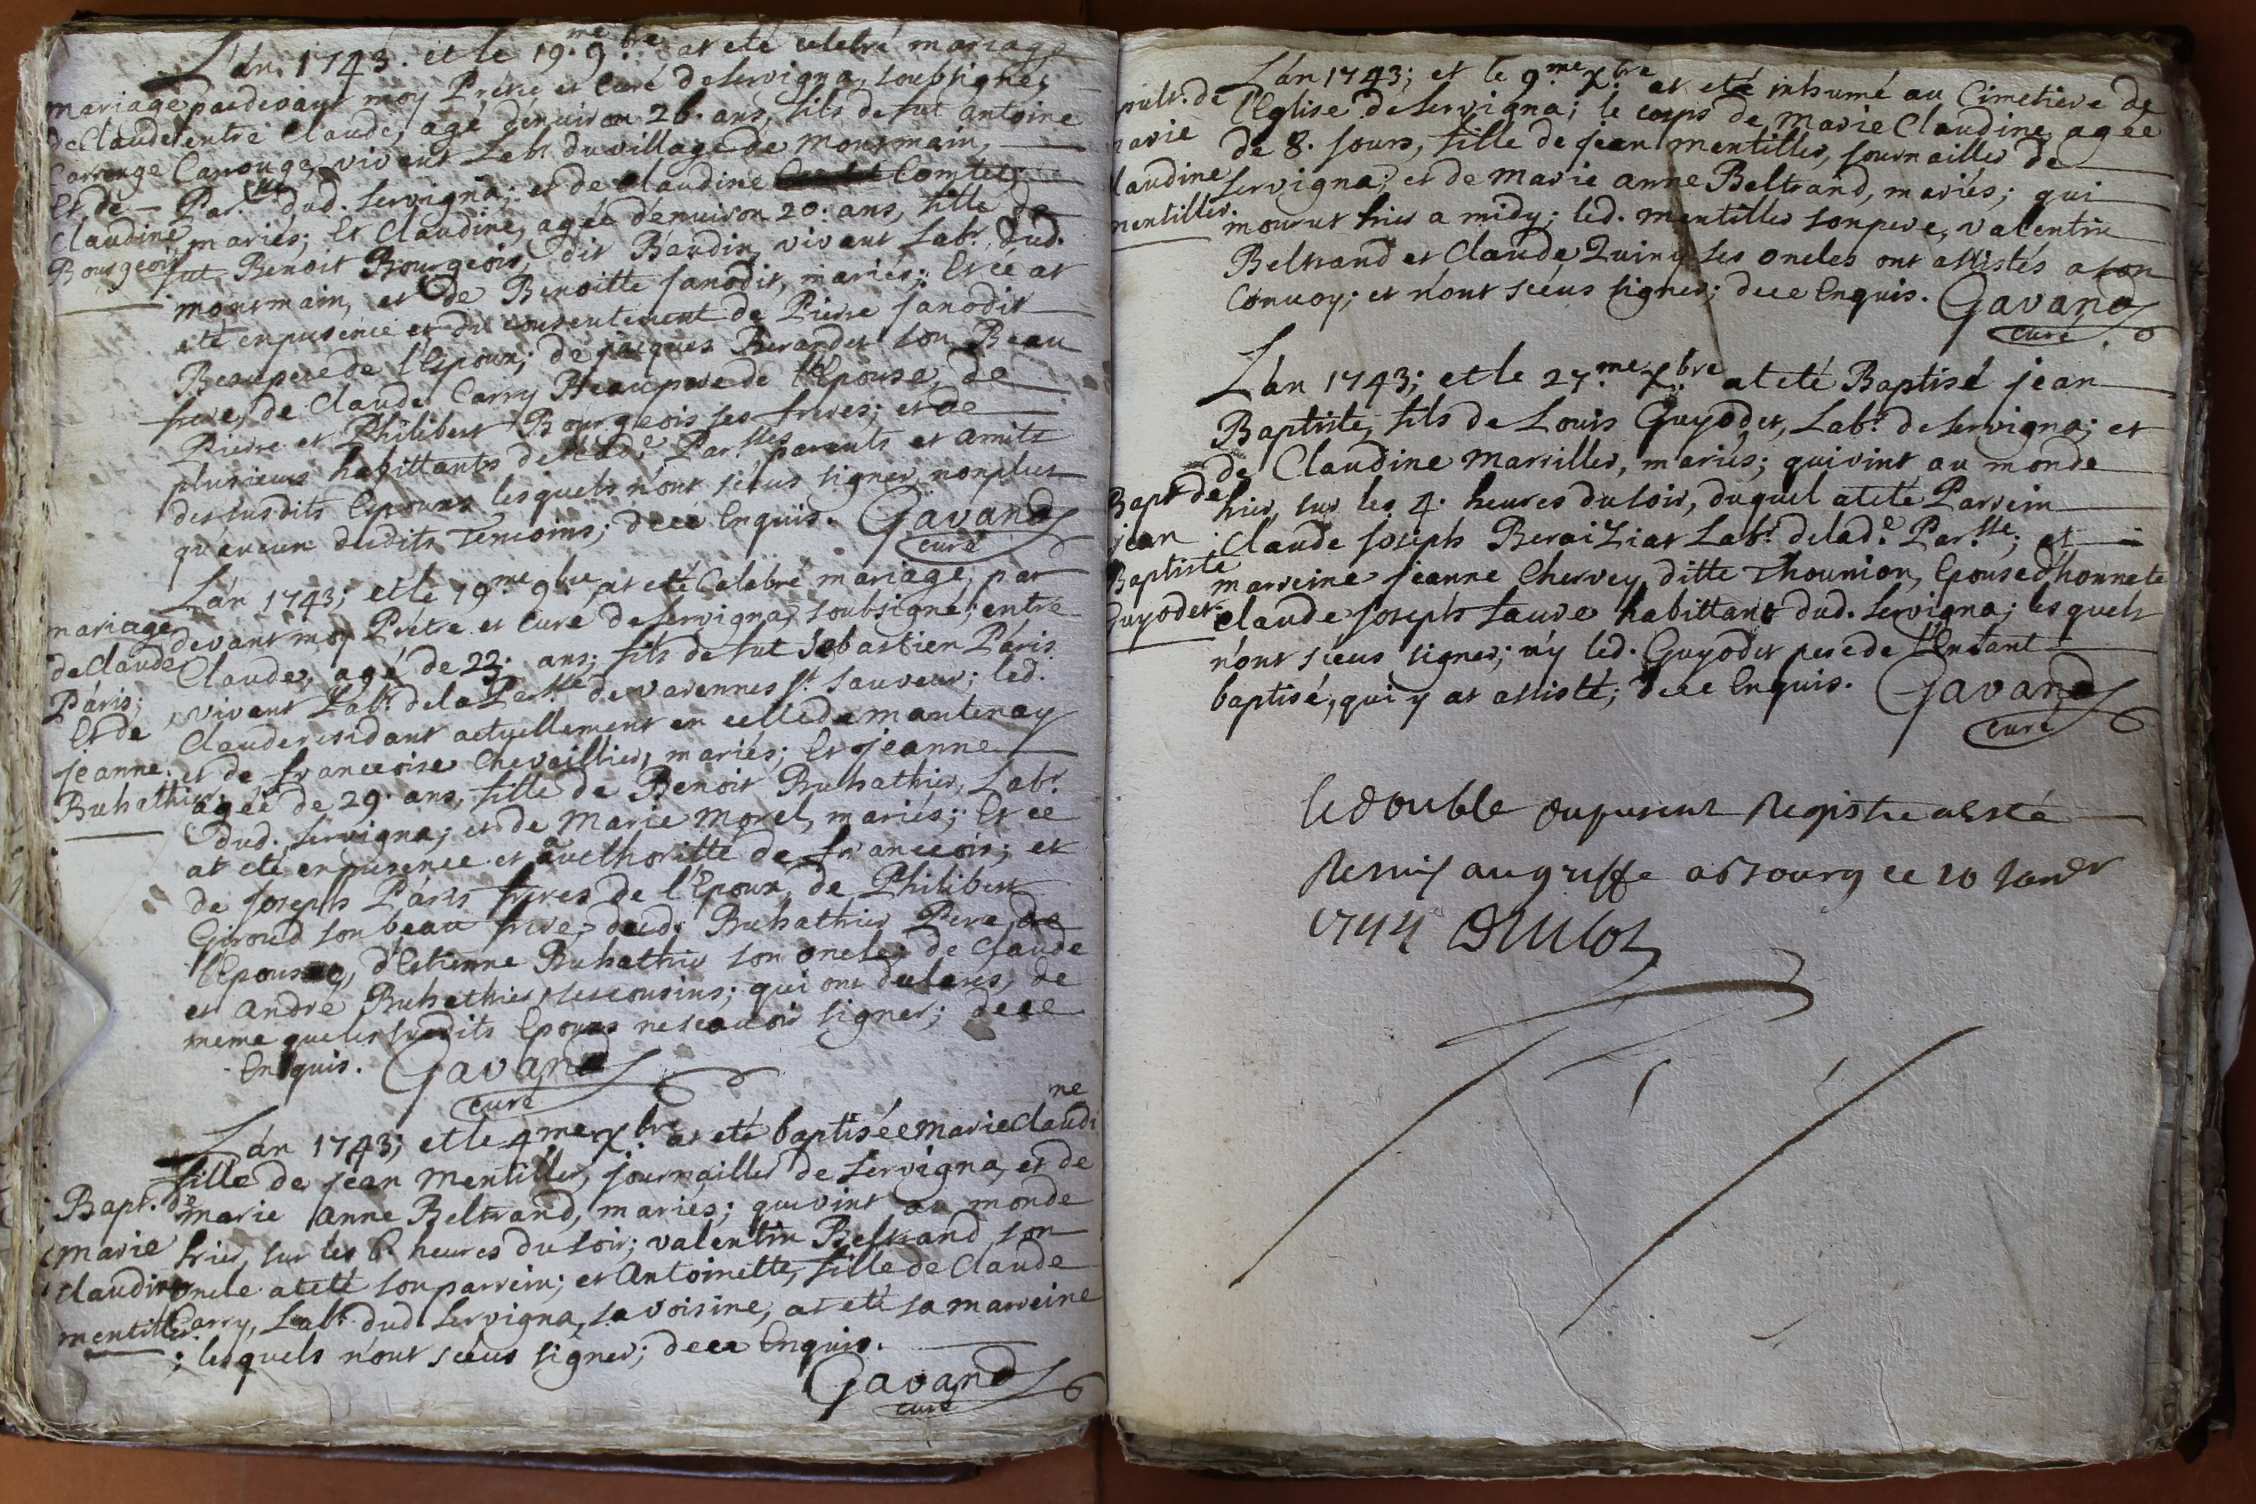 L'án 1743. et le 19.me 9.bre at eté celebré mariage
mariage
de Claude
Carrouge
Et de
Claudine
Bourgeois
pardevant moy Prêtre et Curé de Servigna, soubsigné;
entre Claude, agé d'enuiron 26. ans, fils de fut Antoine
Carrouge, vivant Labr. du village de Montmain,
Par.sse dud. Servigna; et de Claudine Comtet,
mariés; Et Claudine, agée d'enuiron 20. ans, fille de
fut Benoit Bourgeois, dit Baudin, vivant Labr. dud.
montmain, et de Benoitte Janodit, mariés; Et ce at
eté en presence et du consentement de Pierre Janodit
Beaupere de l'Epoux; de jacques Berardet son Beau
frere, de Claude Carry Beaupere de l'Epouse, de
Pierre et Philibert Bourgeois ses freres; et de
plusieurs habittants de lad.e Par.sse parents et amits
des susdits Epoux lesquels n'ont sceus signer, non plus
qu'aucun dudits Temoins; de ce Enquis. Gavand
curé
L'án 1743; et le 19.me 9.bre at eté Celebré mariage, par
mariage
de Claude
Páris;
Et de
jeanne
Buhathier
devant moy Prêtre et Curé de Servigna, soubsigné; entre
Claude, agé de 23. ans; fils de fut Sebastien Páris
vivant Labr. de la Par.sse de varennes St. Sauveur; led.
Claude residant actuellement en celle de mantenay
et de francoise Chevaillier, mariés; Et jeanne
agée de 29. ans, fille de Benoit Buhathier, Labr.
dud. Servigna; et de Marie Morel, mariés; Et ce
at eté en presence et authoritté de francois; et
de Joseph Páris freres de l'Epoux, de Philibert
Giroud son beau frere, dud. Buhathier Pere de
l'Epouse, d'Estienne Buhathier son oncle; de Claude
et André Buhathier, ses cousins; qui ont declarés, de
meme que les susdits Epoux ne scauoir signer; de ce
Enquis. Gavand
curé
L'án 1743; et le 4.me X.bre at eté baptisée Marie Claudine
Bapt. de
marie
claudine
mentiller
fille de jean Mentiller, journailler de Servigna, et de
marie Anne Beltrand, mariés; qui vint au monde
hier, sur les 6. heures du soir; valentin Beltrand son
oncle at eté son parrein; et Antoinette, fille de Claude
Carry, Labr. dud Servigna, sa voisine, at eté sa marreine
; lesquels n'ont sceus signer; de ce Enquis.
Gavand
curé
L'án 1743; et le 9.me X.bre at eté inhumé au Cimetiere de
pult. de
marie
claudine
mentiller.
l'Eglise de Servigna; le corps de Marie Claudine, agée
de 8. jours, fille de jean mentiller, journailler de
Servigna; et de Marie Anne Beltrand, mariés; qui
mourut hier a midy; led. mentiller son pere, valentin
Beltrand et Claude Quiny ses oncles ont assistés a son
Convoy; et n'ont sceus signer; de ce Enquis. Gavand
curé
L'án 1743; et le 27.me X.bre at eté Baptisé jean
Baptiste, fils de Louis Guyodet, Labr. de Servigna; et
de Claudine Marsiller, mariés; qui vint au monde
Bapt de
jean
Baptiste
Guyodet
hier, sur les 4. heures du soir, duquel at eté Parrein
Claude Joseph Beraiziat Labr. de lad.e Par.sse; et
marreine jeanne Chervey, ditte Thounion, Epouse d'honnete
Claude Joseph Sauve habittant dud. Servigna; lesquels
n'ont sceus signer; n'y led. Guyodet pere de l'Enfant
baptisé, qui y at assisté; de ce Enquis. Gavand
curé
le double du present Registre a esté
Remis au greffe a bourg ce 10 Janer
1744